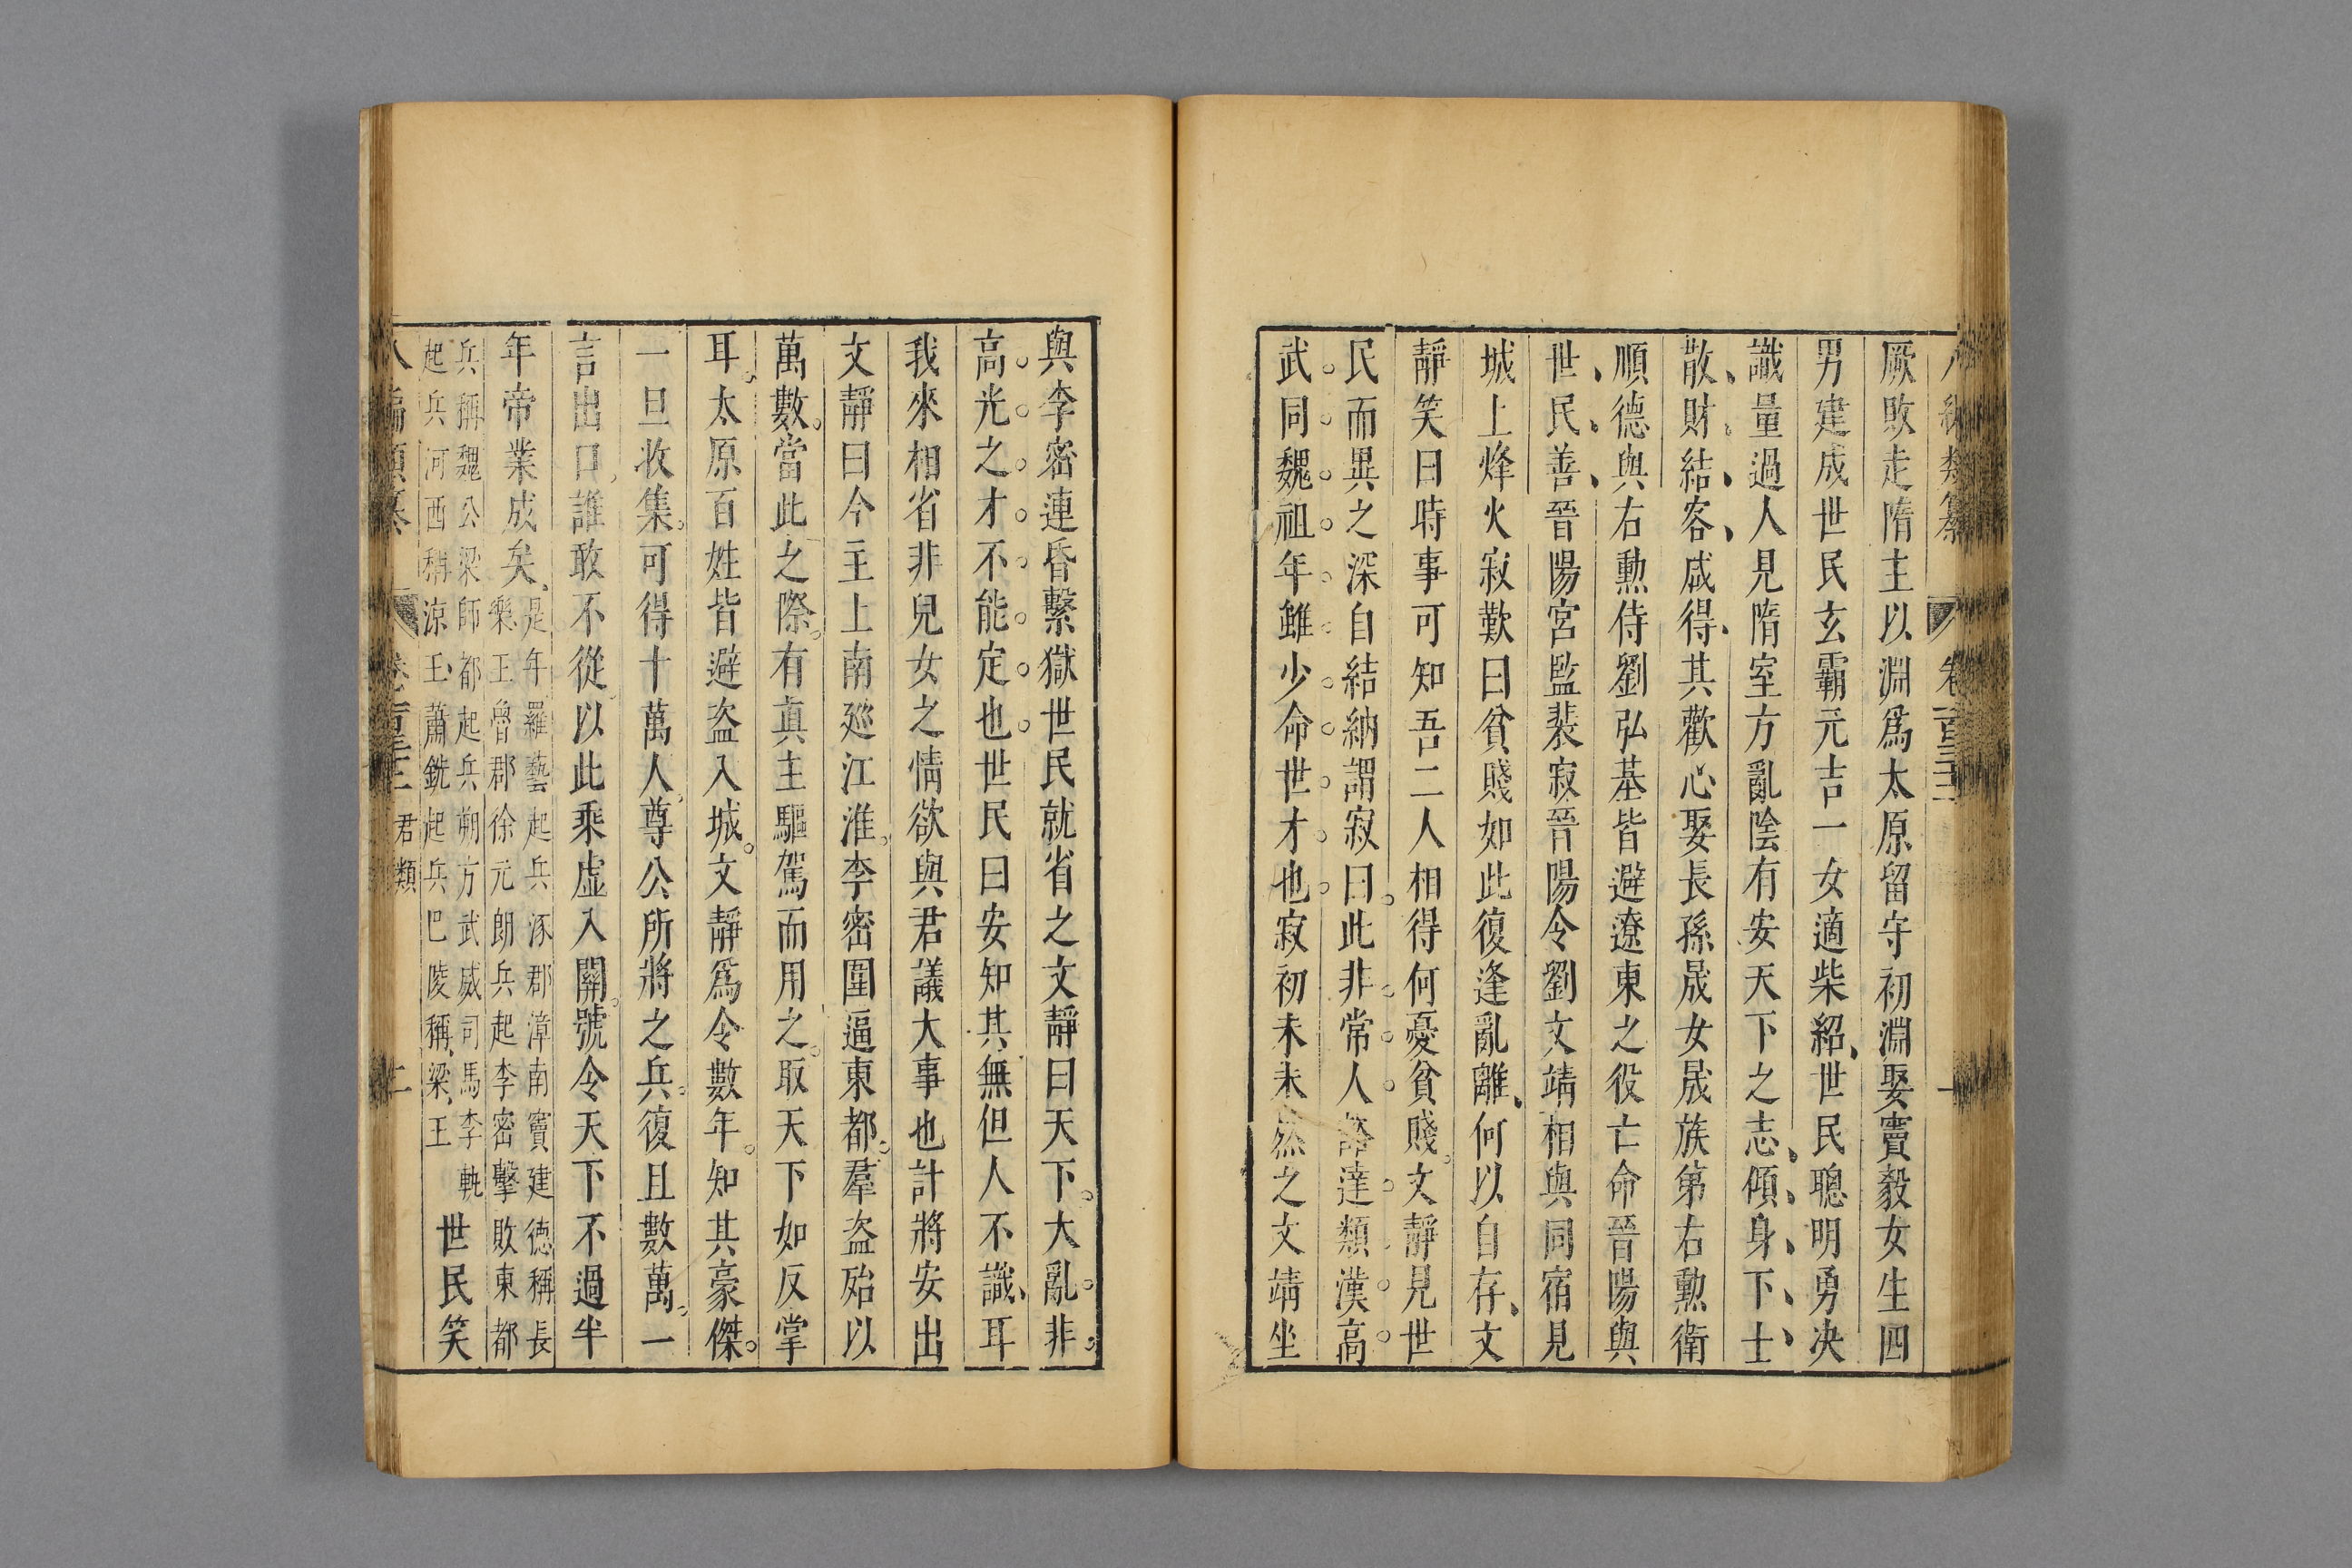 厥敗走隋主以淵爲太原留守初淵娶竇毅女生四
男建成世民玄霸元吉一女適柴紹世民聰明勇决
識量過人見隋室方亂陰有安天下之志傾身下士
散財結客咸得其歡心娶長孫晟女晟族弟右勲衛
順德與右勲侍劉弘基皆避遼東之役亡命晉陽與
世民善晉陽宮監裴寂晉陽令劉文靖相與同宿見
城上烽火寂歎曰貧賤如此復逢亂離何以自存文
靜笑曰時事可知吾二人相得何憂貧賤文靜見世
民而異之深自結納謂寂曰此非常人豁達類漢高
武同魏祖年雖少命世才也寂初未未然之文靖坐
與李密連昏繫獄世民就省之文靜曰天下大亂非
高光之才不能定也世民曰安知其無但人不識耳
我來相省非兒女之情欲與君議大事也計將安出
文靜曰今主上南廵江淮李密圍逼東都羣盗殆以
萬數當此之際有真主驅駕而用之取天下如反掌
耳太原百姓皆避盗入城文靜爲令數年知其豪傑
一旦收集可得十萬人尊公所將之兵復且數萬一
言出口誰敢不從以此乘虛入關號令天下不過半
年帝業成矣是年羅藝起兵涿郡漳南竇建德稱長
樂王魯郡徐元朗兵起李密擊敗東都
兵稱魏公梁師都起兵朔方武威司馬李軌
起兵河西稱涼王蕭銑起兵巴陵稱梁王世民笑
編類纂 卷之百三十三 君類 二